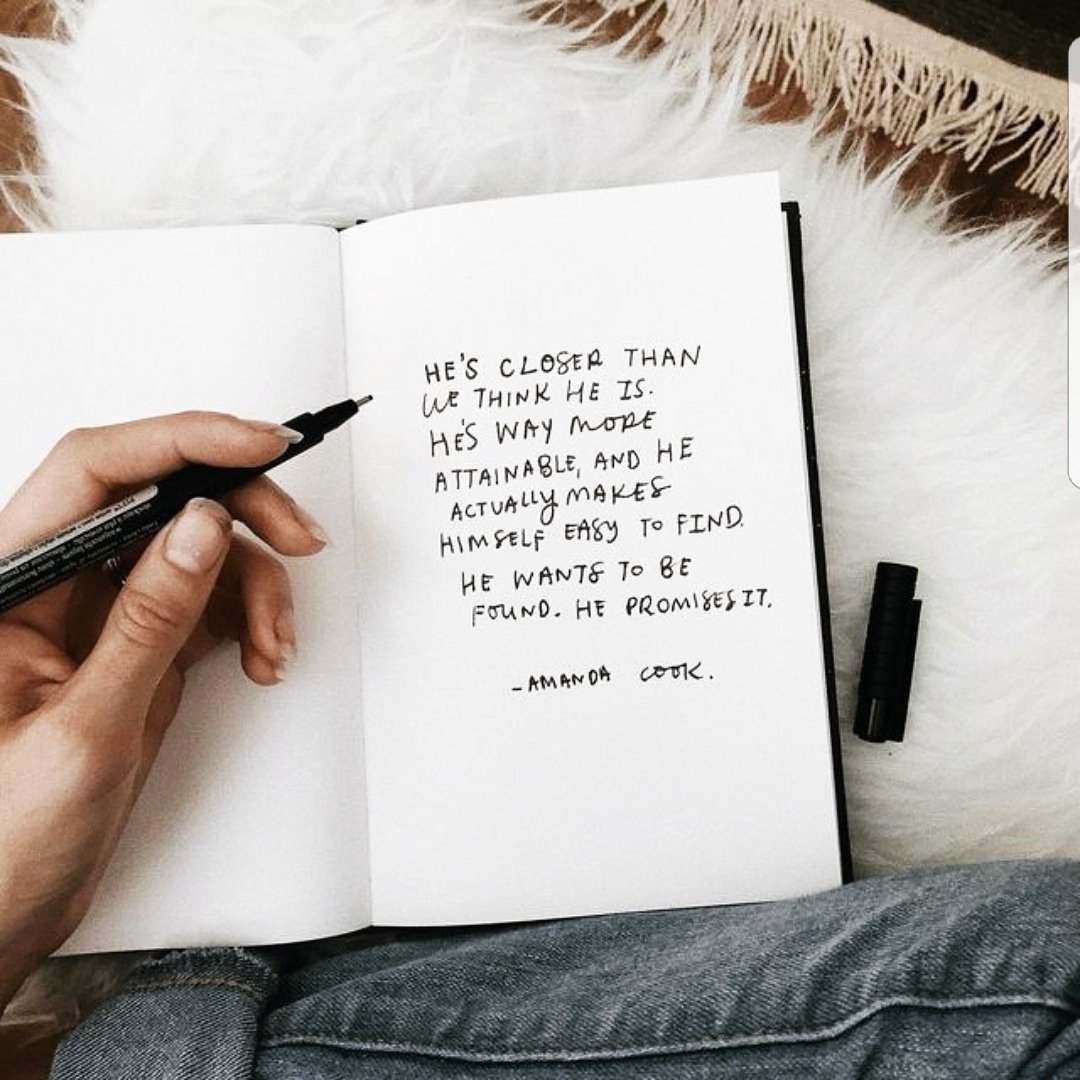 HE'S CLOSER THAN
WE THINK HE IS.
HE'S WAY MORE
ATTAINABLE, AND HE
ACTUALLY MAKES
HIMSELF EASY TO FIND.
HE WANTS TO BE
FOUND. HE PROMISES IT.
-AMANDA COOK.